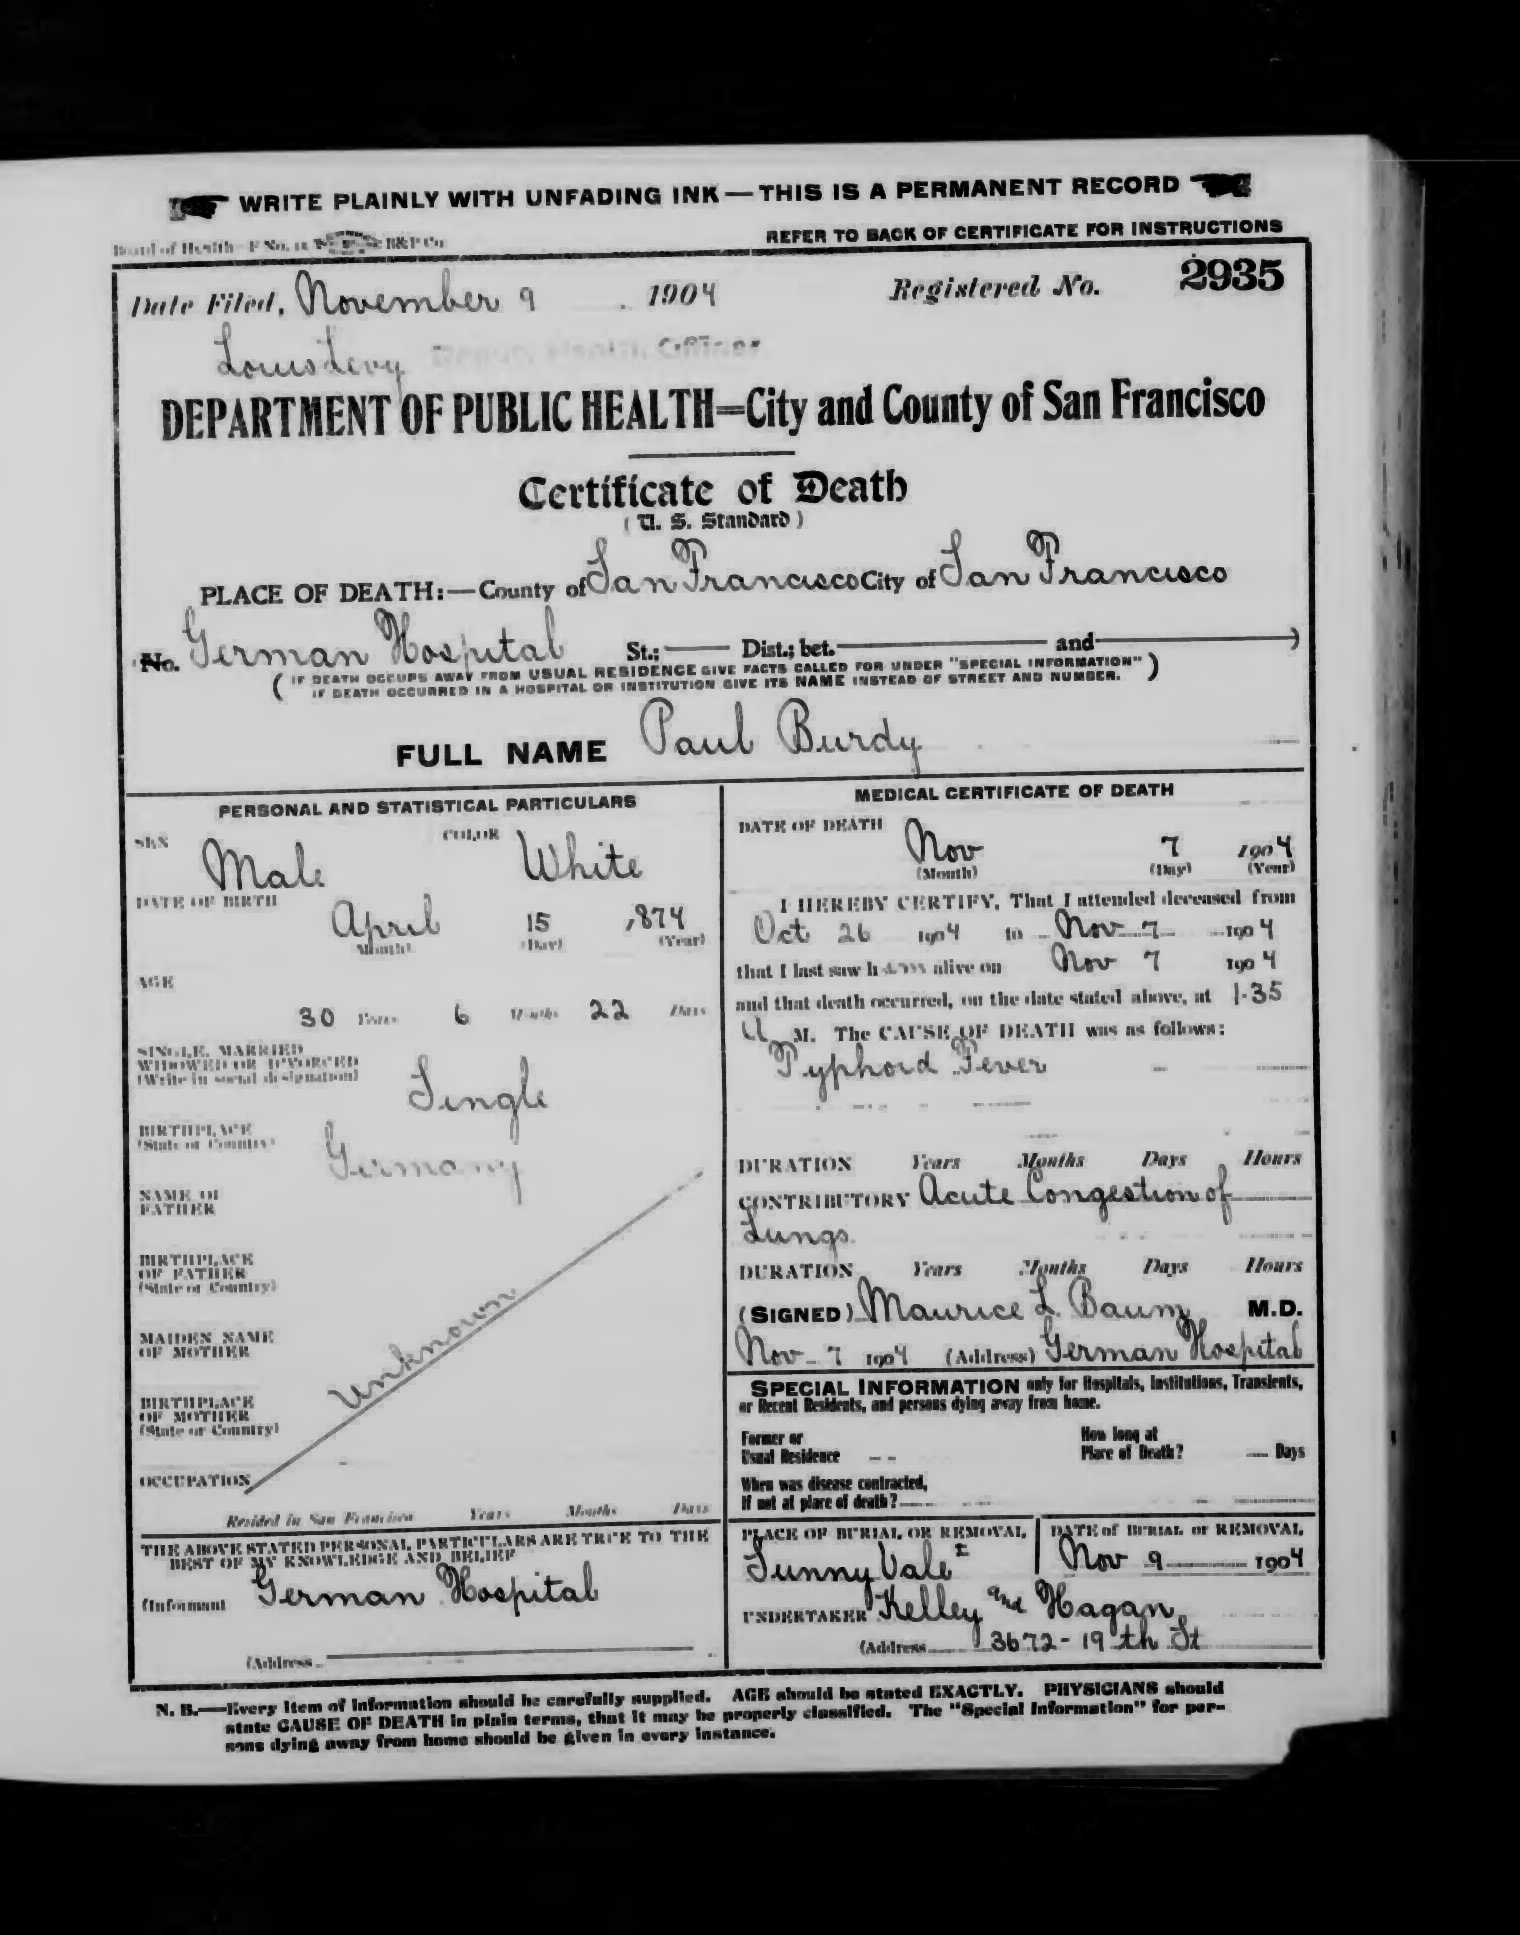 WRITE PLAINLY WITH UNFADING INK — THIS IS A PERMANENT RECORD
Board of Health—F No. B&P Co
REFER TO BACK OF CERTIFICATE FOR INSTRUCTIONS
Date Filed, November 9 1904
Registered No. 2935
Louis Levy Deputy Health Officer
DEPARTMENT OF PUBLIC HEALTH=City and County of San Francisco
Certificate of Death
(U. S. Standard)
PLACE OF DEATH:—County of San Francisco City of San Francisco
No. German Hospital St.; Dist.; bet. and )
( IF DEATH OCCURS AWAY FROM USUAL RESIDENCE GIVE FACTS CALLED FOR UNDER "SPECIAL INFORMATION" )
IF DEATH OCCURRED IN A HOSPITAL OR INSTITUTION GIVE ITS NAME INSTEAD OF STREET AND NUMBER.
FULL NAME Paul Burdy
PERSONAL AND STATISTICAL PARTICULARS
SEX Male COLOR White
DATE OF BIRTH
April 15 1874
(Month) (Day) (Year)
AGE
30 Years 6 Months 22 Days
SINGLE, MARRIED
WIDOWED OR DIVORCED
(Write in social designation)
Single
BIRTHPLACE
(State or Country)
Germany
NAME OF
FATHER
BIRTHPLACE
OF FATHER
(State or Country)
MAIDEN NAME
OF MOTHER
unknown
BIRTHPLACE
OF MOTHER
(State or Country)
OCCUPATION
Resided in San Francisco Years Months Days
THE ABOVE STATED PERSONAL PARTICULARS ARE TRUE TO THE
BEST OF MY KNOWLEDGE AND BELIEF
(Informant German Hospital
(Address
MEDICAL CERTIFICATE OF DEATH
DATE OF DEATH
Nov 7 1904
(Month) (Day) (Year)
I HEREBY CERTIFY, That I attended deceased from
Oct 26 1904 to Nov 7 1904
that I last saw him alive on Nov 7 1904
and that death occurred, on the date stated above, at 1.35
A M. The CAUSE OF DEATH was as follows:
Typhoid Fever
DURATION Years Months Days Hours
CONTRIBUTORY Acute Congestion of
Lungs
DURATION Years Months Days Hours
(SIGNED) Maurice L. Baum M.D.
Nov 7 1904 (Address) German Hospital
SPECIAL INFORMATION only for Hospitals, Institutions, Transients,
or Recent Residents, and persons dying away from home.
Former or
Usual Residence
How long at
Place of Death? Days
When was disease contracted,
If not at place of death?
PLACE OF BURIAL OR REMOVAL
Sunny Vale
DATE of BURIAL or REMOVAL
Nov 9 1904
UNDERTAKER Kelley and Hagan
(Address 3672-19th St
N. B.—Every item of information should be carefully supplied. AGE should be stated EXACTLY. PHYSICIANS should
state CAUSE OF DEATH in plain terms, that it may be properly classified. The "Special Information" for per-
sons dying away from home should be given in every instance.